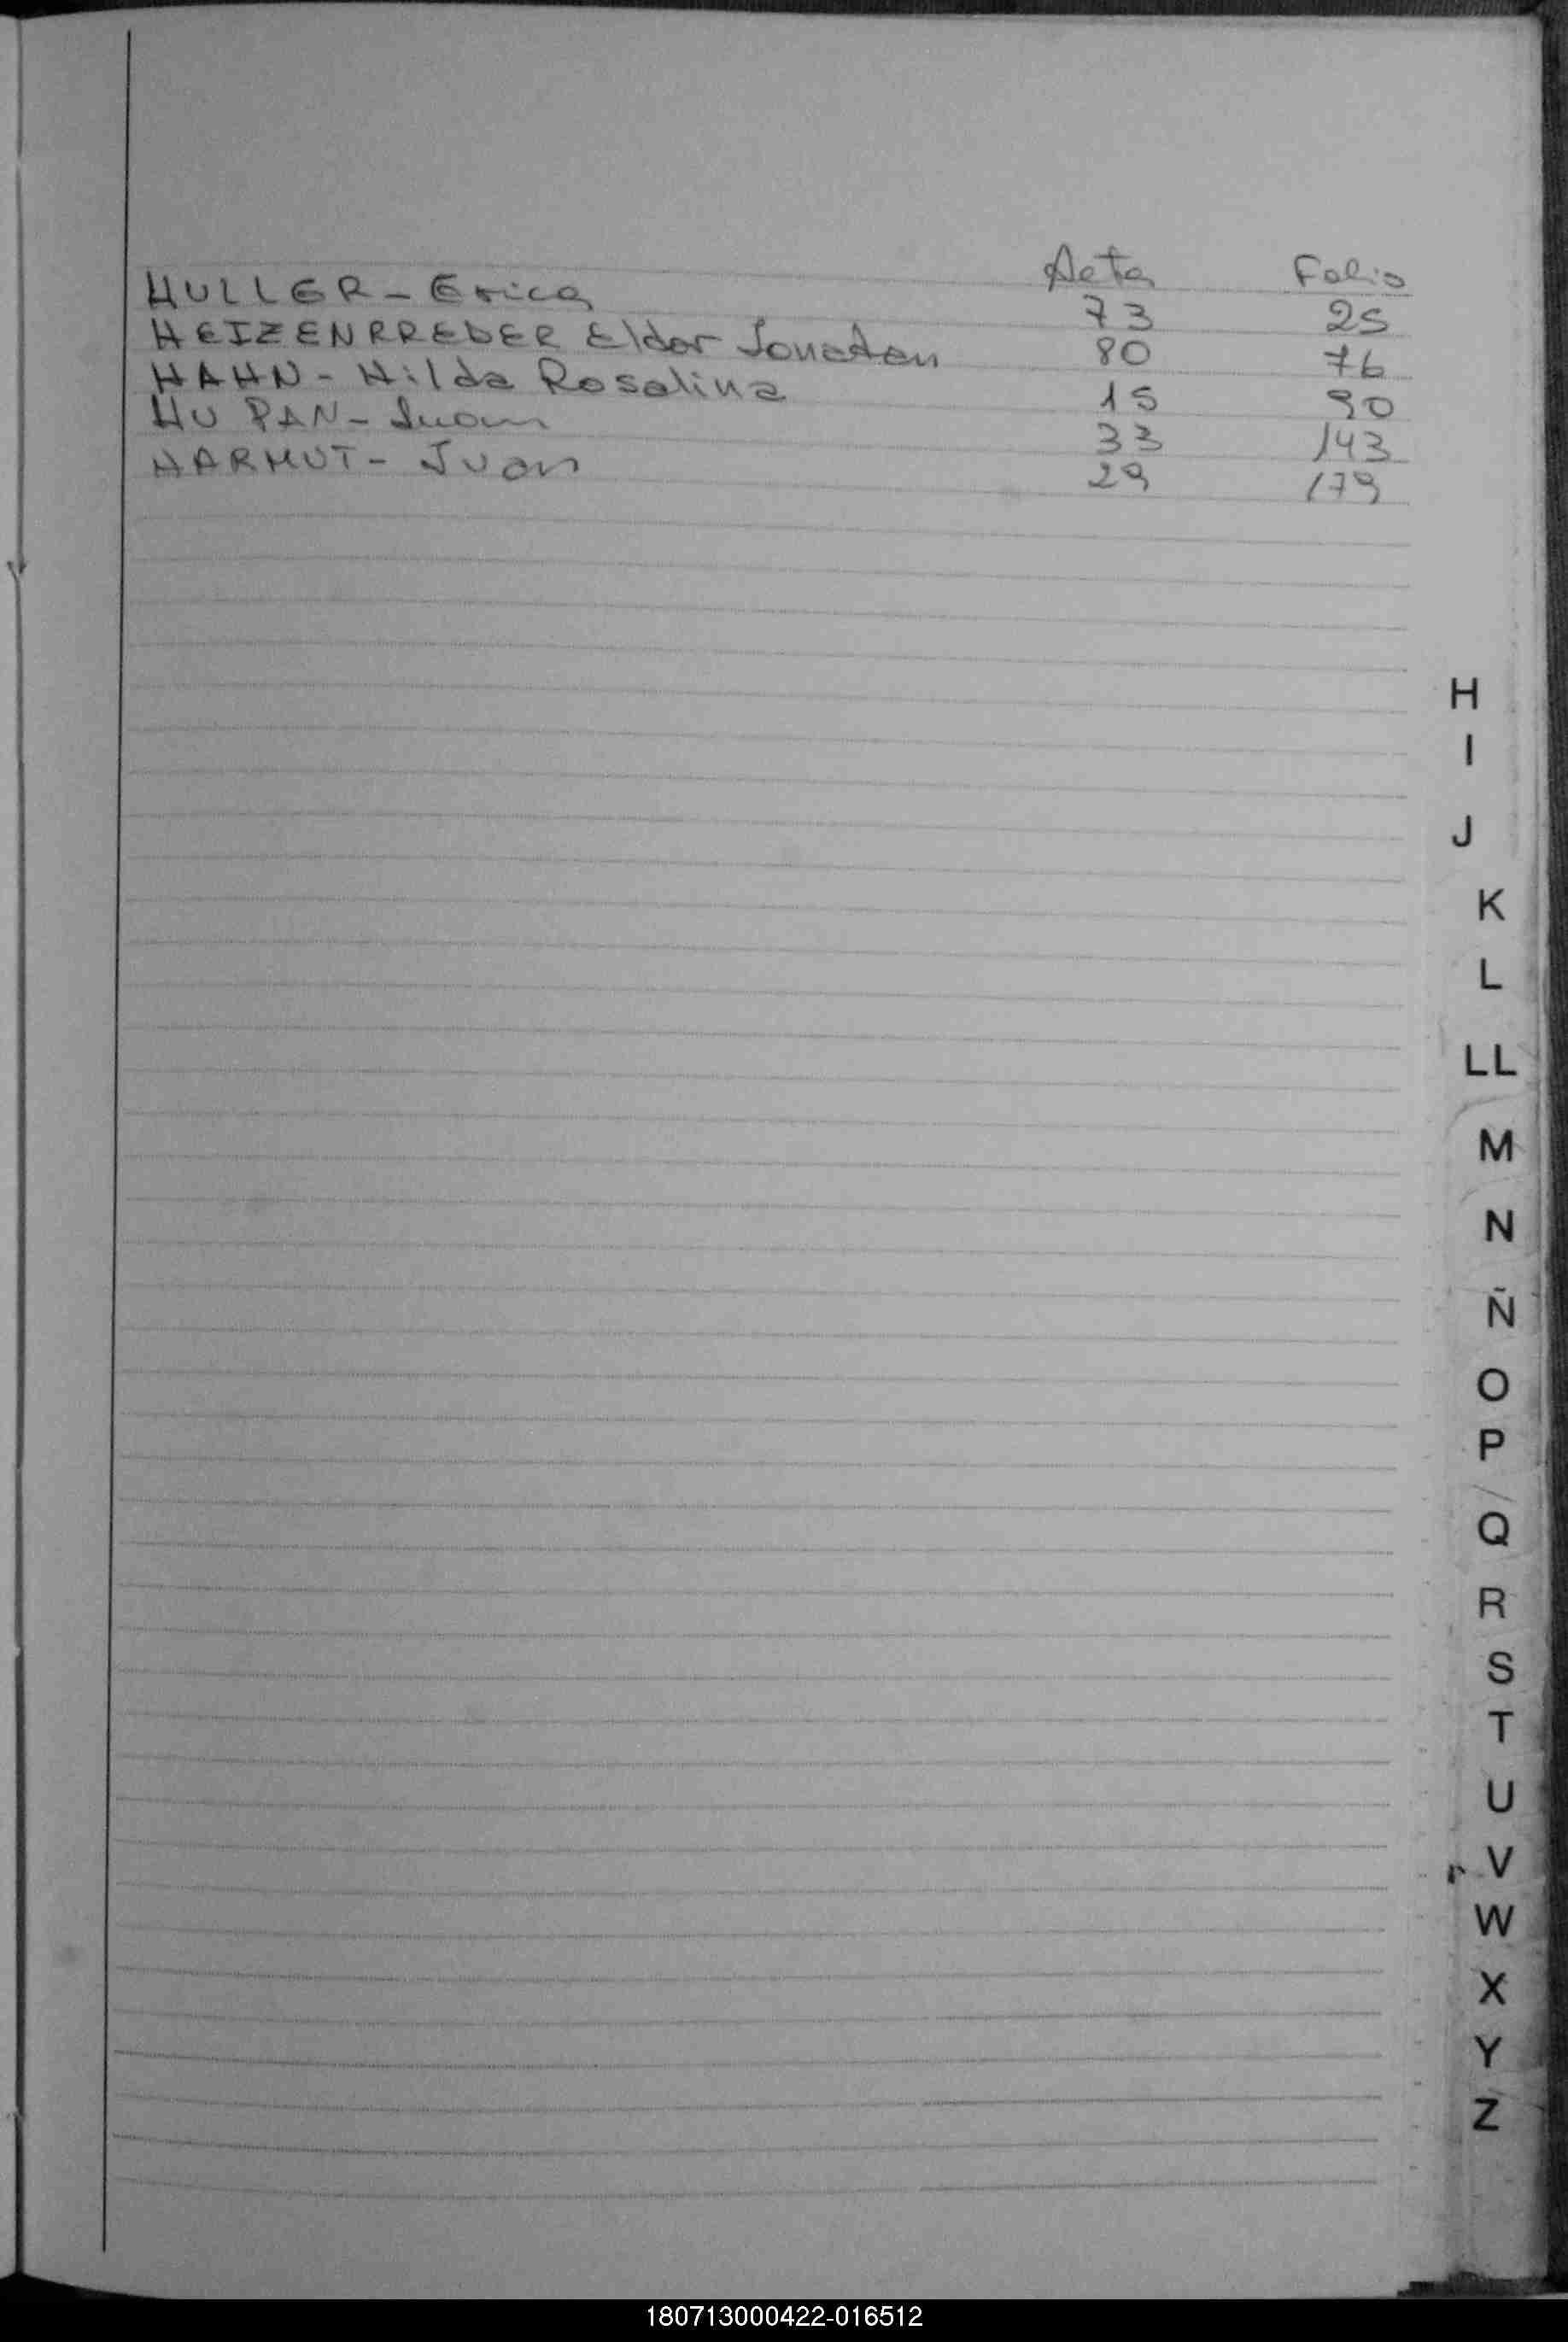 Acta Folio
HULLER - Erica 73 25
HEIZENRREDER Eldor Jonatan 80 76
HAHN - Hilda Rosalina 15 90
HU PAN - Juan 33 143
HARMUT - Juan 29 179
H
I
J
K
L
LL
M
N
Ñ
O
P
Q
R
S
T
U
V
W
X
Y
Z
180713000422-016512